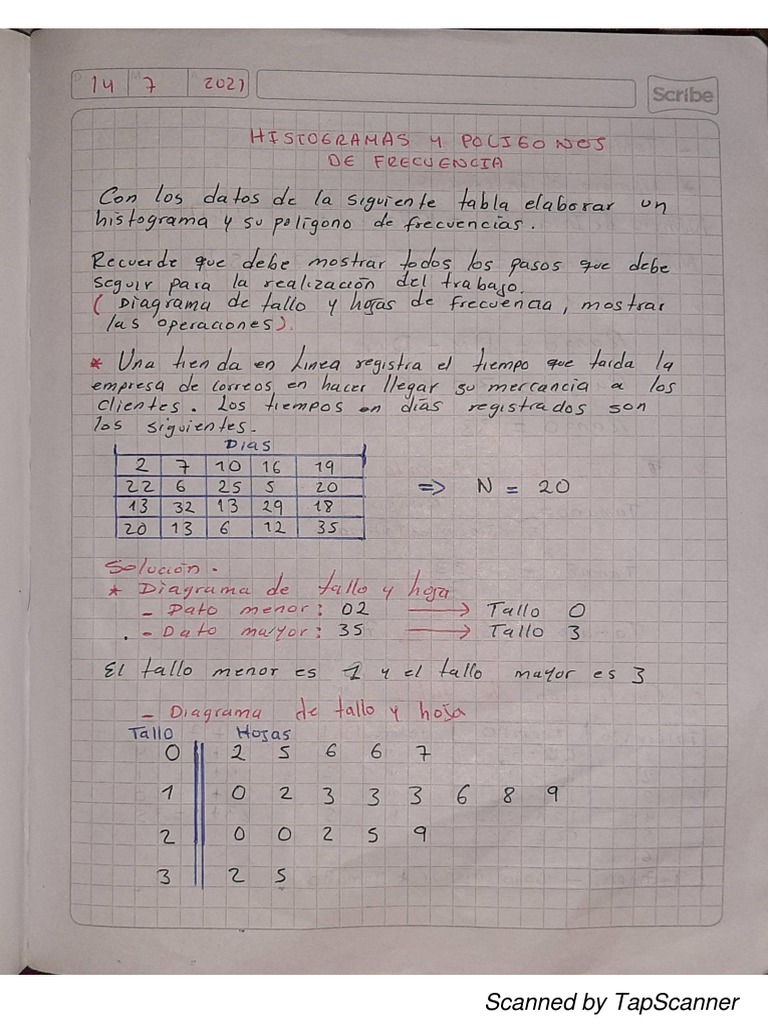 14 7 2021
Scribe
HISTOGRAMAS Y POLIGONOS
DE FRECUENCIA
Con los datos de la siguiente tabla elaborar un
histograma y su polígono de frecuencias.
Recuerde que debe mostrar todos los pasos que debe
seguir para la realización del trabajo.
( Diagrama de tallo y hojas de frecuencia, mostrar
las operaciones).
* Una tienda en Linea registra el tiempo que tarda la
empresa de correos en hacer llegar su mercancia a los
clientes. Los tiempos en días registrados son
los siguientes.
Dias
2 7 10 16 19
22 6 25 5 20 => N = 20
13 32 13 29 18
20 13 6 12 35
Solución.
* Diagrama de tallo y hoja
- Dato menor: 02 → Tallo 0
. - Dato mayor: 35 → Tallo 3
El tallo menor es 1 y el tallo mayor es 3
- Diagrama de tallo y hoja
Tallo Hojas
0 2 5 6 6 7
1 0 2 3 3 3 6 8 9
2 0 0 2 5 9
3 2 5
Scanned by TapScanner